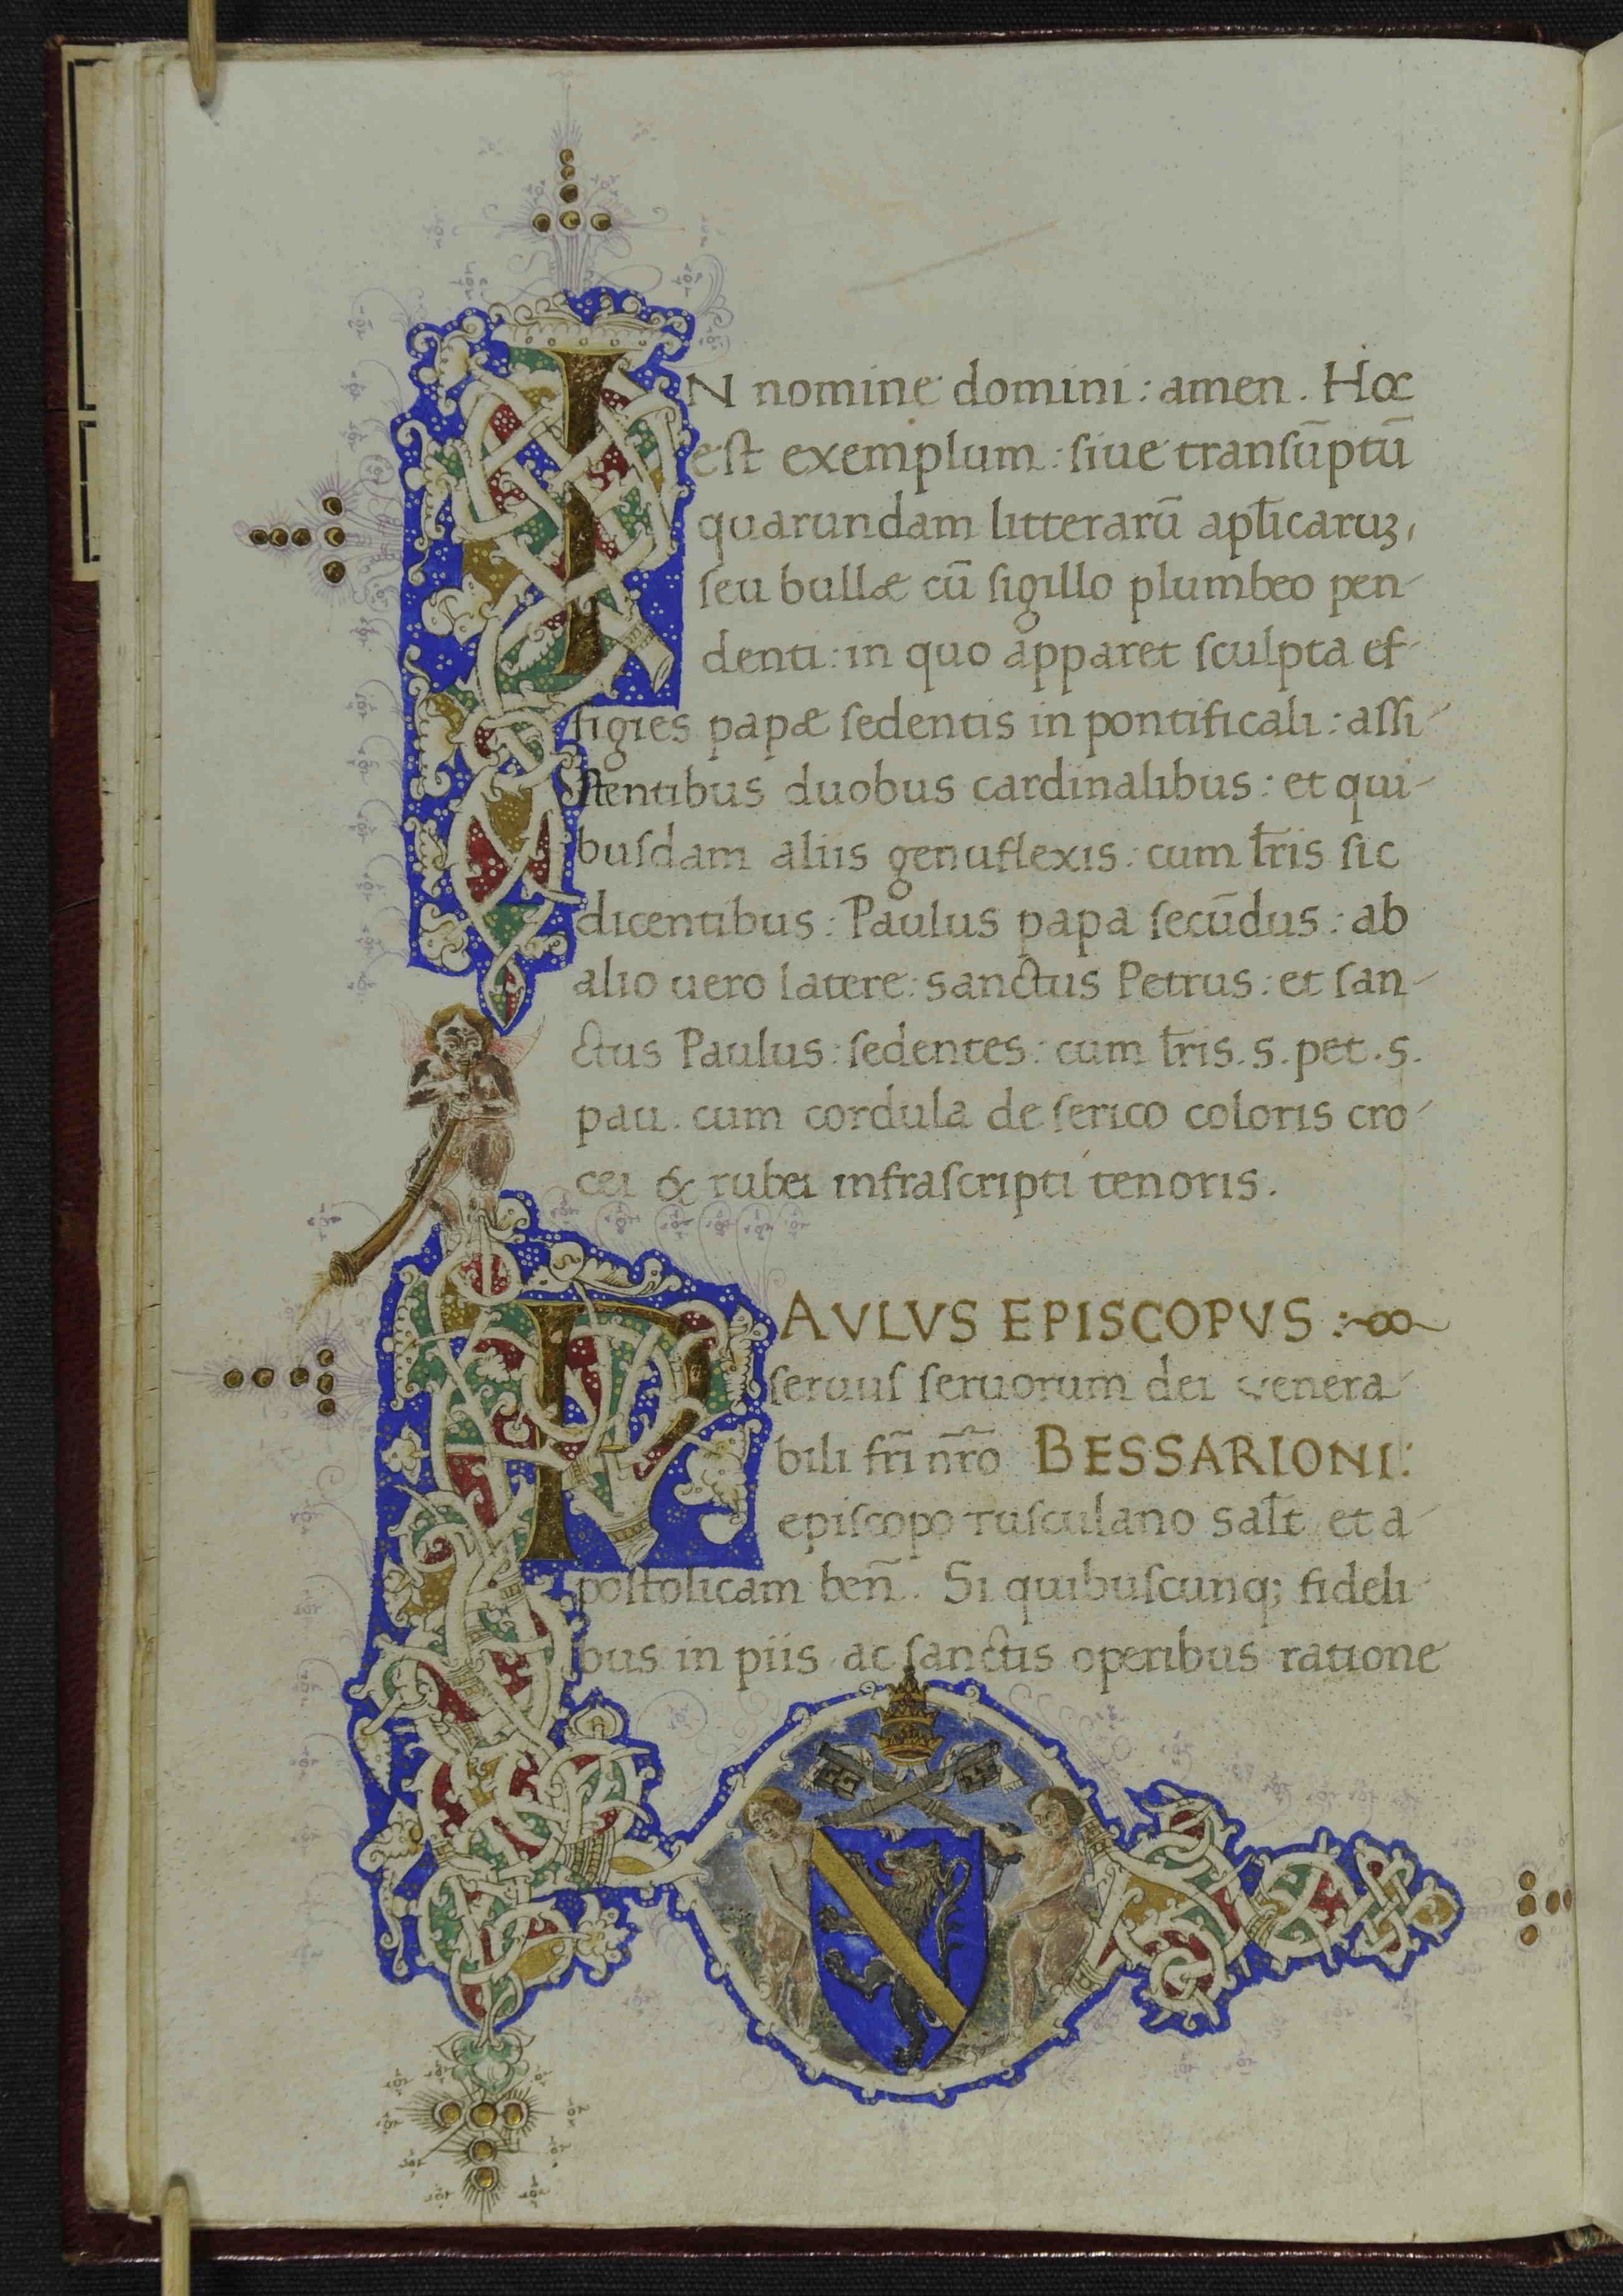 IN nomine domini: amen. Hoc
est exemplum: siue transūptū
quarundam litterarū apl̄icaruꝫ,
seu bullæ cū sigillo plumbeo pen-
denti: in quo apparet sculpta ef-
figies papæ sedentis in pontificali: assi-
stentibus duobus cardinalibus: et qui-
busdam aliis genuflexis: cum lr̄is sic
dicentibus: Paulus papa secūdus: ab
alio uero latere: sanctus Petrus: et san-
ctus Paulus: sedentes: cum lr̄is. s. pet. s.
pau. cum cordula de serico coloris cro-
cei & rubei infrascripti tenoris.
PAVLVS EPISCOPVS :~∞~
seruus seruorum dei venera-
bili fr̄i nr̄o BESSARIONI:
episcopo tusculano sal̄t et a-
postolicam ben̄. Si quibuscunq; fideli-
bus in piis ac sanctis operibus ratione